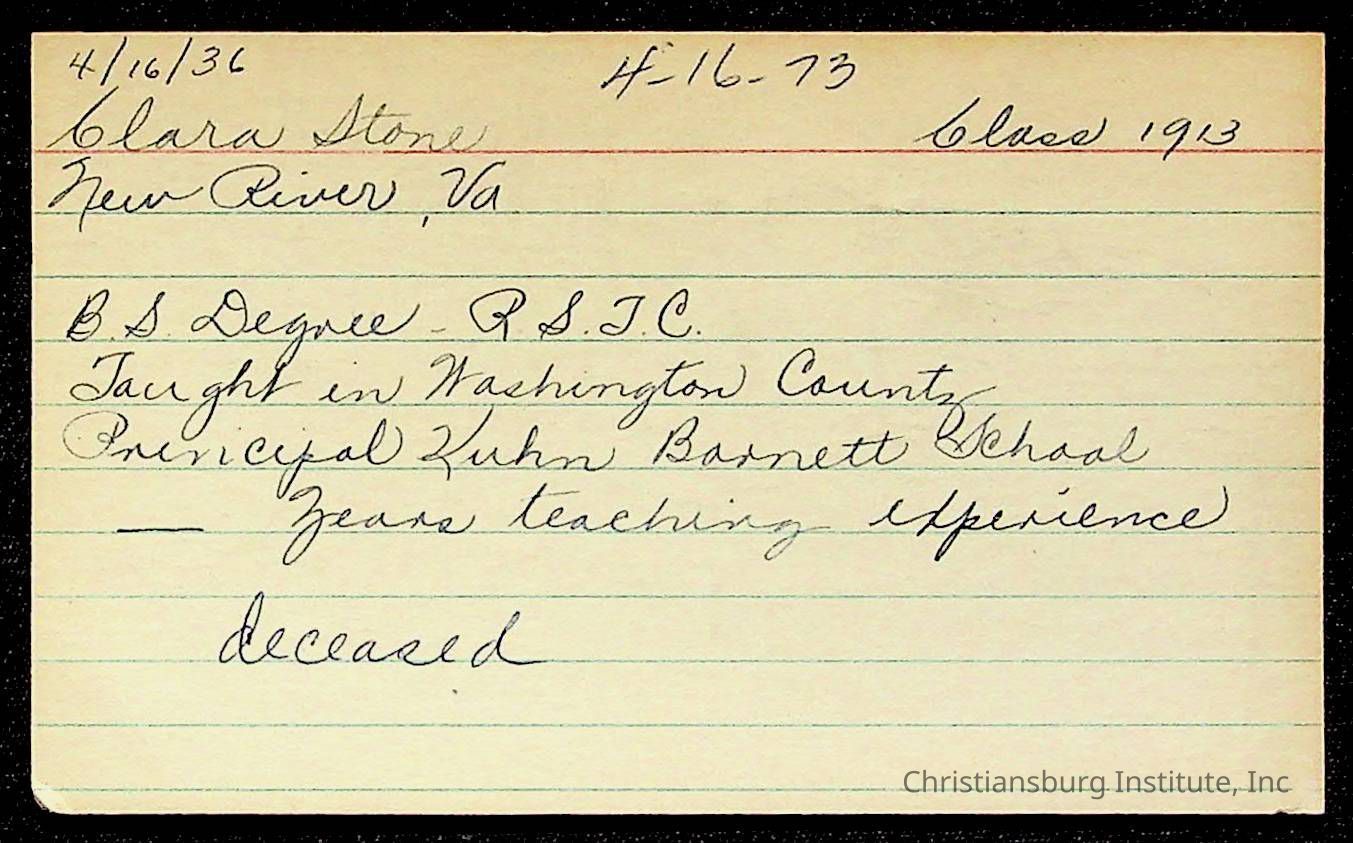 4/16/36 4-16-73
Clara Stone Class 1913
New River, Va
B.S. Degree - R.S.T.C.
Taught in Washington County
Principal Kuhn Barnett School
___ Years teaching experience
deceased
Christiansburg Institute, Inc